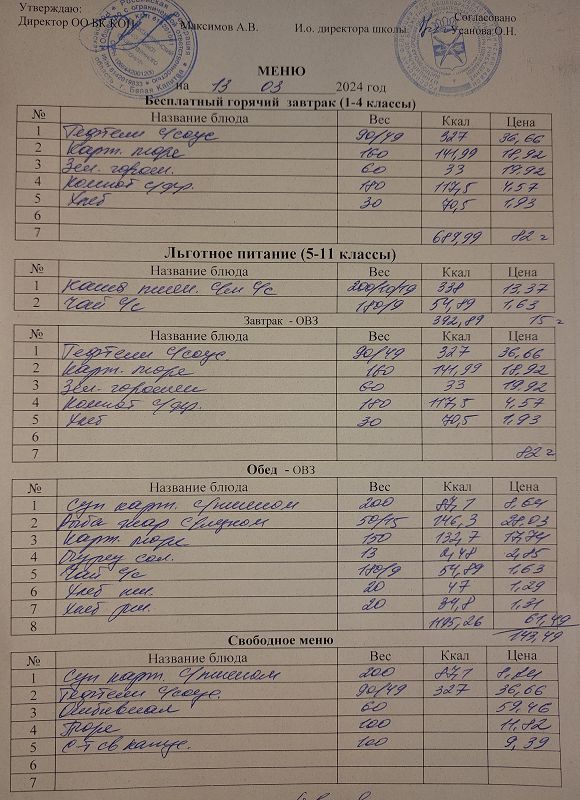 Утверждаю:
Директор ОО БК КОН Максимов А.В. И.о. директора школы Согласовано Усанова О.Н.
МЕНЮ
на 13 03 2024 год
Бесплатный горячий завтрак (1-4 классы)
№ Название блюда Вес Ккал Цена
1 Тефтели с/соус 90/49 327 36,66
2 Карт. пюре 160 141,99 18,92
3 Зел. горош. 60 33 19,92
4 Компот с/фр. 180 117,5 4,57
5 Хлеб 30 70,5 1,93
6
7 689,99 82
Льготное питание (5-11 классы)
№ Название блюда Вес Ккал Цена
1 Каша пшен. с/м с/с 200/10/19 338 13,37
2 Чай с/с 180/9 54,89 1,63
Завтрак - ОВЗ 392,89 15
№ Название блюда Вес Ккал Цена
1 Тефтели с/соус. 90/49 327 36,66
2 Карт. пюре 160 141,99 18,92
3 Зел. горошек 60 33 19,92
4 Компот с/фр. 180 117,5 4,57
5 Хлеб 30 70,5 1,93
6
7 82
Обед - ОВЗ
№ Название блюда Вес Ккал Цена
1 Суп карт. с/пшеном 200 87,1 8,64
2 Рыба жар с/луком 50/15 146,3 28,03
3 Карт. пюре 150 132,7 17,74
4 Огурец сол. 13 2,48 2,85
5 Чай с/с 180/9 54,89 1,63
6 Хлеб пш. 20 47 1,29
7 Хлеб рж. 20 34,8 1,31
8 61,49
143,49
Свободное меню
№ Название блюда Вес Ккал Цена
1 Суп карт. с/пшеном 200 87,1
2 Тефтели с/соус. 90/49 327 36,66
3 60 59,46
4 Пюре 100 11,82
5 100 9,39
6
7